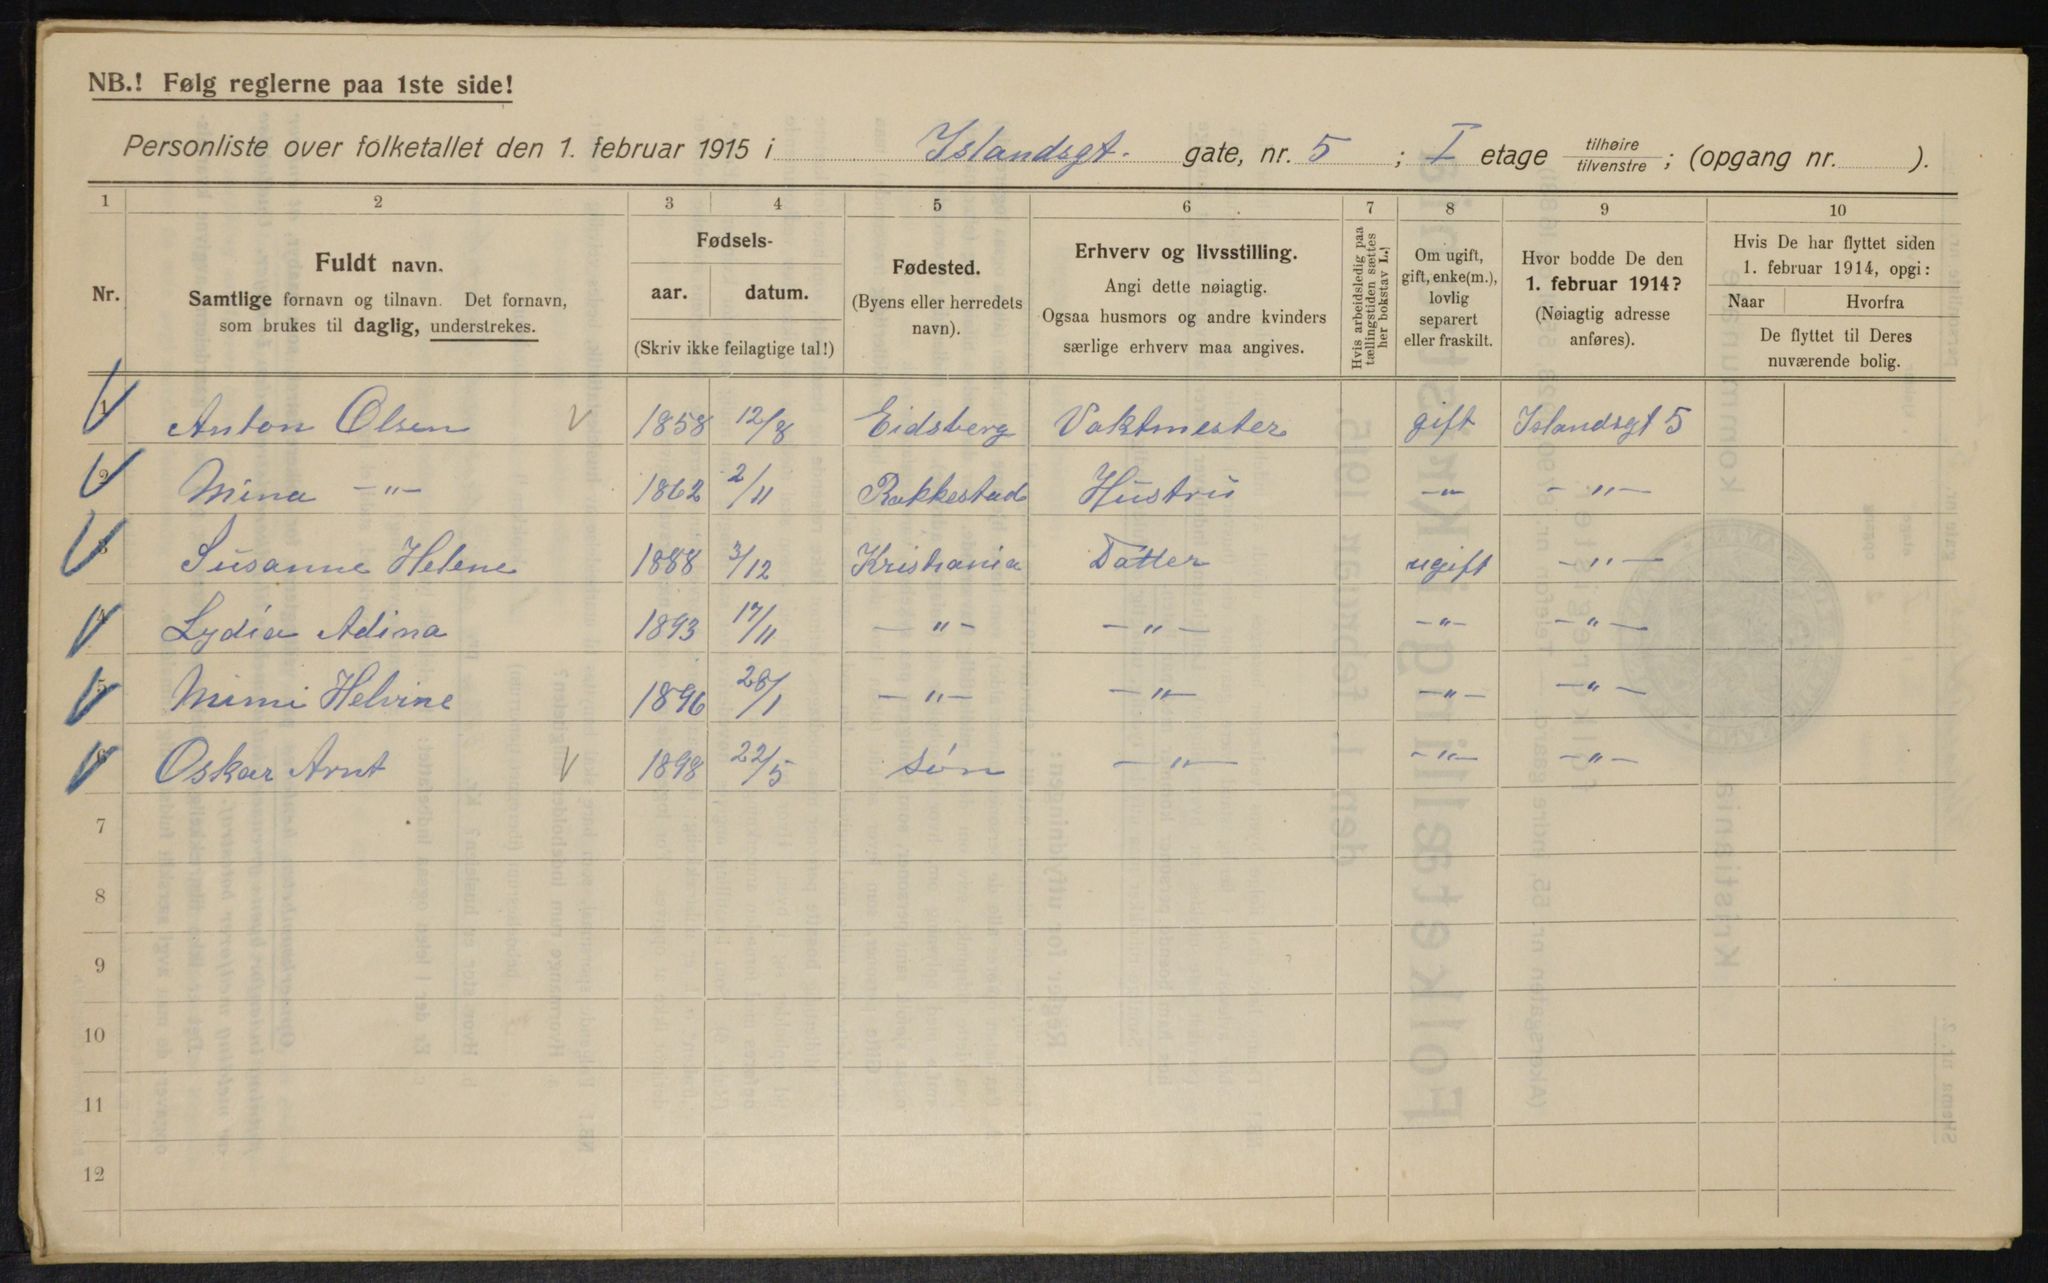 NB.! Følg reglerne paa 1ste side!
Personliste over folketallet den 1. februar 1915 i Islandsgt. gate, nr. 5 ; I etage tilhøire tilvenstre ; (opgang nr. ).
1 2 3 4 5 6 7 8 9 10
Nr.
Fuldt navn.
Samtlige fornavn og tilnavn. Det fornavn,
som brukes til daglig, understrekes.
Fødsels-
aar. datum.
(Skriv ikke feilagtige tal!)
Fødested.
(Byens eller herredets
navn).
Erhverv og livsstilling.
Angi dette nøiagtig.
Ogsaa husmors og andre kvinders
særlige erhverv maa angives.
Hvis arbeidsledig paa
tællingstiden sættes
her bokstav L.!
Om ugift,
gift, enke(m.),
lovlig
separert
eller fraskilt.
Hvor bodde De den
1. februar 1914?
(Nøiagtig adresse
anføres).
Hvis De har flyttet siden
1. februar 1914, opgi:
Naar Hvorfra
De flyttet til Deres
nuværende bolig.
1 Anton Olsen 1858 12/8 Eidsberg Vaktmester gift Islandsgt 5
2 Mina -"- 1862 2/11 Rakkestad Hustru -"- -"-
3 Susanne Helene 1888 3/12 Kristiania Datter ugift -"-
4 Lydia Adina 1893 17/11 -"- -"- -"- -"-
5 Mimi Helvine 1896 28/1 -"- -"- -"- -"-
6 Oskar Arnt 1898 22/5 søn -"- -"- -"-
7
8
9
10
11
12